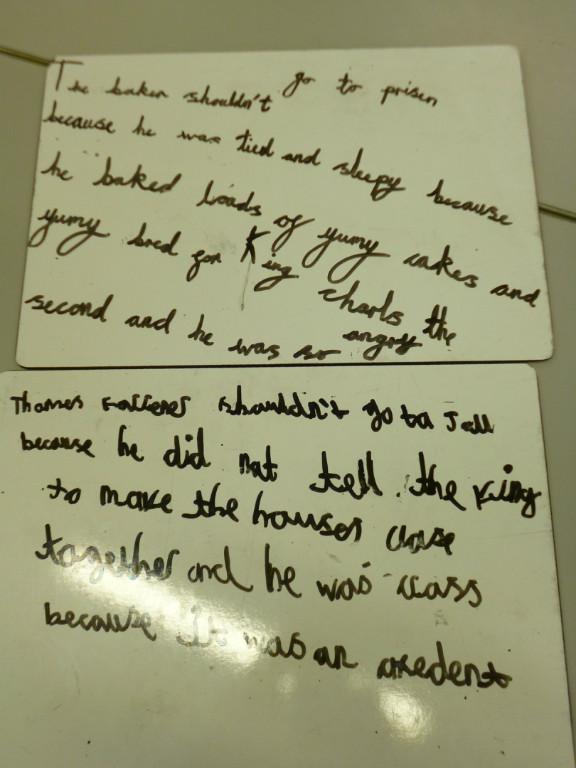 The baker shouldn't go to prisen
because he was tied and sleepy because
he baked loads of yumy cakes and
yumy bred for King charls the
second and he was so angry
Thomas shouldn't go to Jall
because he did not tell the King
to make the houses close
together and he was class
because it was an axedent